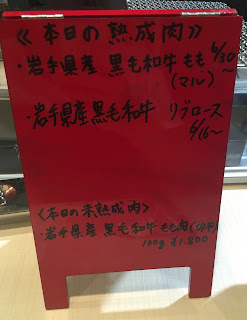 《本日の熟成肉》
・岩手県産 黒毛和牛 もも 5/30~
(マル)
・岩手県産黒毛和牛 リブロース
6/16~
〈本日の未熟成肉〉
・岩手県産 黒毛和牛 もも肉
100g ¥1,800